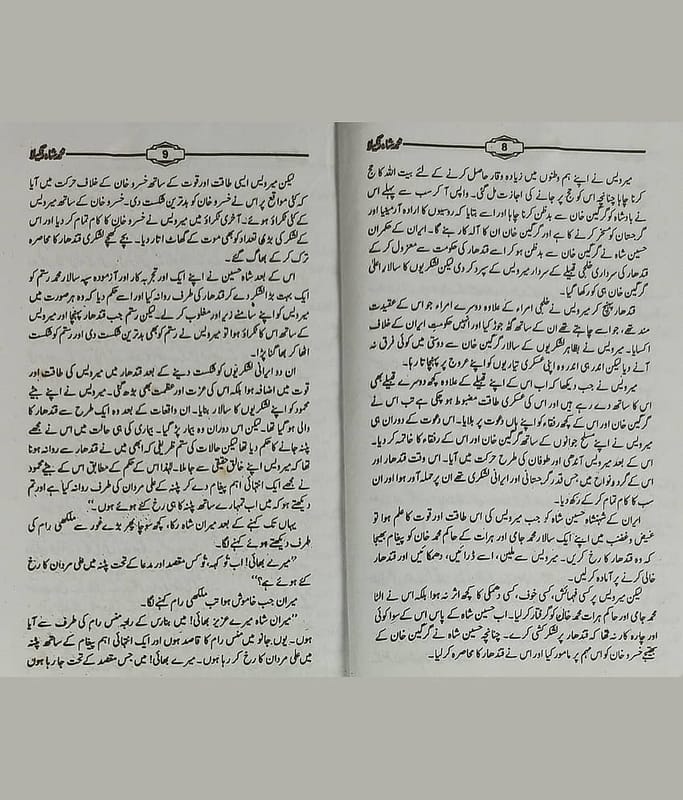 محمد شاہ رنگیلا
8
میرویس نے اپنے ہم وطنوں میں زیادہ وقار حاصل کرنے کے لئے بیت اللہ کا حج
کرنا چاہا چنانچہ اس کو حج پر جانے کی اجازت مل گئی۔ واپس آ کر سب سے پہلے اس
نے بادشاہ کو گرگین خان سے بدظن کرنا چاہا اور اسے بتایا کہ روسیوں کا ارادہ آرمینیا اور
گرجستان کو مسخر کرنے کا ہے اور گرگین خان ان کا آلہ کار بنے گا۔ ایران کے حکمران
حسین شاہ نے گرگین خان سے بدظن ہو کر اسے قندھار کی حکومت سے معزول کر کے
قندھار کی سرداری غلجئی قبیلے کے سردار میرویس کے سپرد کر دی لیکن لشکریوں کا سالار اعلیٰ
گرگین خان ہی کو رکھا گیا۔
قندھار پہنچ کر میرویس نے غلجی امراء کے علاوہ دوسرے امراء جو اس کے عقیدت
مند تھے، جو اسے چاہتے تھے ان کے ساتھ گٹھ جوڑ کیا اور انہیں حکومت ایران کے خلاف
اکسایا۔ میرویس نے بظاہر لشکریوں کے سالار گرگین خان سے دوستی میں کوئی فرق نہ
آنے دیا لیکن اندر ہی اندر وہ اپنی عسکری تیاریوں کو اپنے عروج پر پہنچاتا رہا۔
میرویس نے جب دیکھا کہ اب اس کے اپنے قبیلے کے علاوہ کچھ دوسرے قبیلے بھی
اس کا ساتھ دے رہے ہیں اور اس کی عسکری طاقت مضبوط ہو چکی ہے تب اس نے
گرگین خان اور اس کے کچھ رفقاء کو اپنے ہاں دعوت پر بلایا۔ اس دعوت کے دوران ہی
میرویس نے اپنے مسلح جوانوں کے ساتھ گرگین خان اور اس کے رفقاء کا خاتمہ کر دیا۔
اس کے بعد میرویس آندھی اور طوفان کی طرح حرکت میں آیا۔ اس وقت قندھار اور
اس کے گرد و نواح میں جس قدر گرجستانی اور ایرانی لشکری تھے ان پر حملہ آور ہوا اور ان
سب کا کام تمام کر کے رکھ دیا۔
ایران کے شہنشاہ حسین شاہ کو جب میرویس کی اس طاقت اور قوت کا علم ہوا تو
غیض و غضب میں اپنے ایک سالار محمد جامی اور ہرات کے حاکم محمد خان کو پیغام بھیجا
کہ وہ قندھار کا رخ کریں۔ میرویس سے ملیں، اسے ڈرائیں، دھمکائیں اور قندھار
خالی کرنے پر آمادہ کر لیں۔
لیکن میرویس پر کسی فہمائش، کسی خوف، کسی دھمکی کا کچھ اثر نہ ہوا بلکہ اس نے الٹا
محمد جامی اور حاکم ہرات محمد خان کو گرفتار کر لیا۔ اب حسین شاہ کے پاس اس کے سوا کوئی اور
چارہ کار نہ تھا کہ قندھار پر لشکر کشی کرے۔ چنانچہ حسین شاہ نے گرگین خان کے
بھتیجے خسرو خان کو اس مہم پر مامور کیا اور اس نے قندھار کا محاصرہ کر لیا۔
محمد شاہ رنگیلا
9
لیکن میرویس ایسی طاقت اور قوت کے ساتھ خسرو خان کے خلاف حرکت میں آیا
کہ کئی مواقع پر اس نے خسرو خان کو بدترین شکست دی۔ خسرو خان کے ساتھ میرویس
کے کئی ٹکراؤ ہوئے۔ آخری ٹکراؤ میں میرویس نے خسرو خان کا کام تمام کر دیا اور اس
کے لشکر کی بڑی تعداد کو بھی موت کے گھاٹ اتار دیا۔ بچے کھچے لشکری قندھار کا محاصرہ
ترک کر کے بھاگ گئے۔
اس کے بعد شاہ حسین نے اپنے ایک اور تجربہ کار اور آزمودہ سپہ سالار محمد رستم کو
ایک بہت بڑا لشکر دے کر قندھار کی طرف روانہ کیا اور اسے حکم دیا کہ وہ ہر صورت میں
میرویس کو اپنے سامنے زیر اور مغلوب کر لے۔ لیکن رستم جب قندھار پہنچا اور میرویس
کے ساتھ اس کا ٹکراؤ ہوا تو میرویس نے رستم کو بھی بدترین شکست دی اور رستم کو شکست
اٹھا کر بھاگنا پڑا۔
ان دو ایرانی لشکریوں کو شکست دینے کے بعد قندھار میں میرویس کی طاقت اور
قوت میں اضافہ ہوا بلکہ اس کی عزت اور عظمت بھی بڑھ گئی۔ میرویس نے اپنے بیٹے
محمود کو اپنے لشکریوں کا سالار بنایا۔ ان واقعات کے بعد وہ ایک طرح سے قندھار کا
والی ہو گیا تھا۔ لیکن اس دوران وہ بیمار پڑ گیا۔ بیماری کی ہی حالت میں اس نے مجھے
پٹنہ جانے کا حکم دیا تھا لیکن حالات کی ستم ظریفی کہ ابھی میں نے قندھار سے روانہ ہونا
تھا کہ میرویس اپنے خالق حقیقی سے جا ملا۔ لہٰذا اس کے حکم کے مطابق اس کے بیٹے محمود
نے مجھے ایک انتہائی اہم پیغام دے کر پٹنہ کے علی مردان کی طرف روانہ کیا ہے اور تم
دیکھتے ہو کہ میں اب تمہارے ساتھ پٹنہ کا ہی رخ کئے ہوئے ہوں۔‘‘
یہاں تک کہنے کے بعد میران شاہ رکا، کچھ سوچا پھر بڑے غور سے ملکھی رام کی
طرف دیکھتے ہوئے کہنے لگا۔
’’میرے بھائی! اب تُو کہہ، تُو کس مقصد اور مدعا کے تحت پٹنہ میں علی مردان کا رخ
کئے ہوئے ہے؟‘‘
میران جب خاموش ہوا تب ملکھی رام کہنے لگا۔
’’میران شاہ میرے عزیز بھائی! میں بنارس کے راجہ منس رام کی طرف سے آیا
ہوں۔ یوں جانو میں منس رام کا قاصد ہوں اور ایک انتہائی اہم پیغام کے ساتھ پٹنہ
میں علی مردان کا رخ کر رہا ہوں۔ میرے بھائی! میں جس مقصد کے تحت جا رہا ہوں